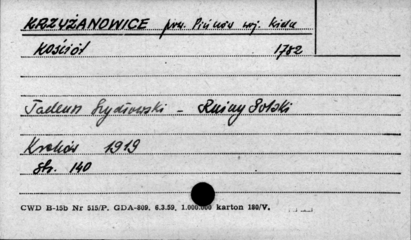 KRZYŻANOWICE pow. Pińczów woj. Kielce
Kościół 1782
Tadeusz Szydłowski - Ruiny Polski
Kraków 1919
Str. 140
CWD B-15b Nr 515/P. GDA-809. 6.3.59. 1.000.000 karton 180/V.